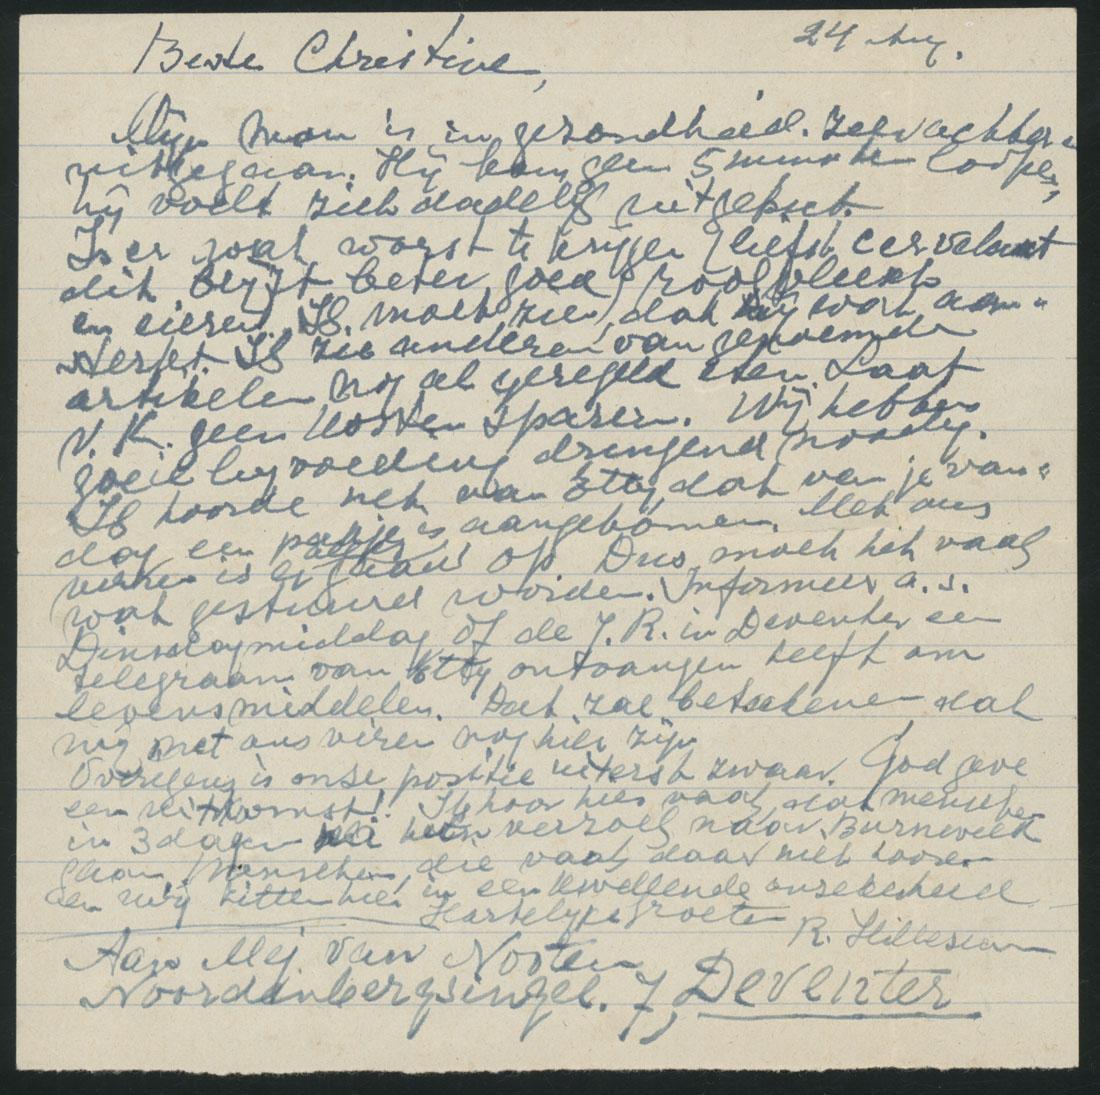 24 Aug.
Beste Christine,
Mijn man is in gezondheid zeer achter-
uitgegaan. Hij kan geen 5 minuten loopen,
hij voelt zich dadelijk uitgeput.
Is er wat worst te krijgen (liefst cervelaat
dit blijft beter goed) rookvleesch
en eieren. Ik moet zien, dat hij wat aan-
sterkt. Ik zie anderen van genoemde
artikelen nog al geregeld eten. Laat
v. K. geen kosten sparen. Wij hebben
goeie bijvoeding dringend noodig.
Ik hoorde net van Etty, dat van je van-
dag een pakje is aangekomen. Met ons
vieren is er gauw op. Dus moet het vaak
wat gestuurd worden. Informeer a.s.
Dinsdagmiddag of de J. R. in Deventer een
telegram van Etty ontvangen heeft om
levensmiddelen. Dat zal beteekenen dat
wij met ons vieren nog hier zijn
Overigens is onze positie uiterst zwaar. God geve
een uitkomst! Ik hoor hier vaak, dat menschen
in 3 dagen verzoek naar Barneveld
gaan. Menschen, die vaak daar niet hooren
en wij zitten hier in een kwellende onzekerheid
Hartelijke groeten
R. Hillesum
Aan Mej. van Nooten
Noordenbergsingel. 7, Deventer